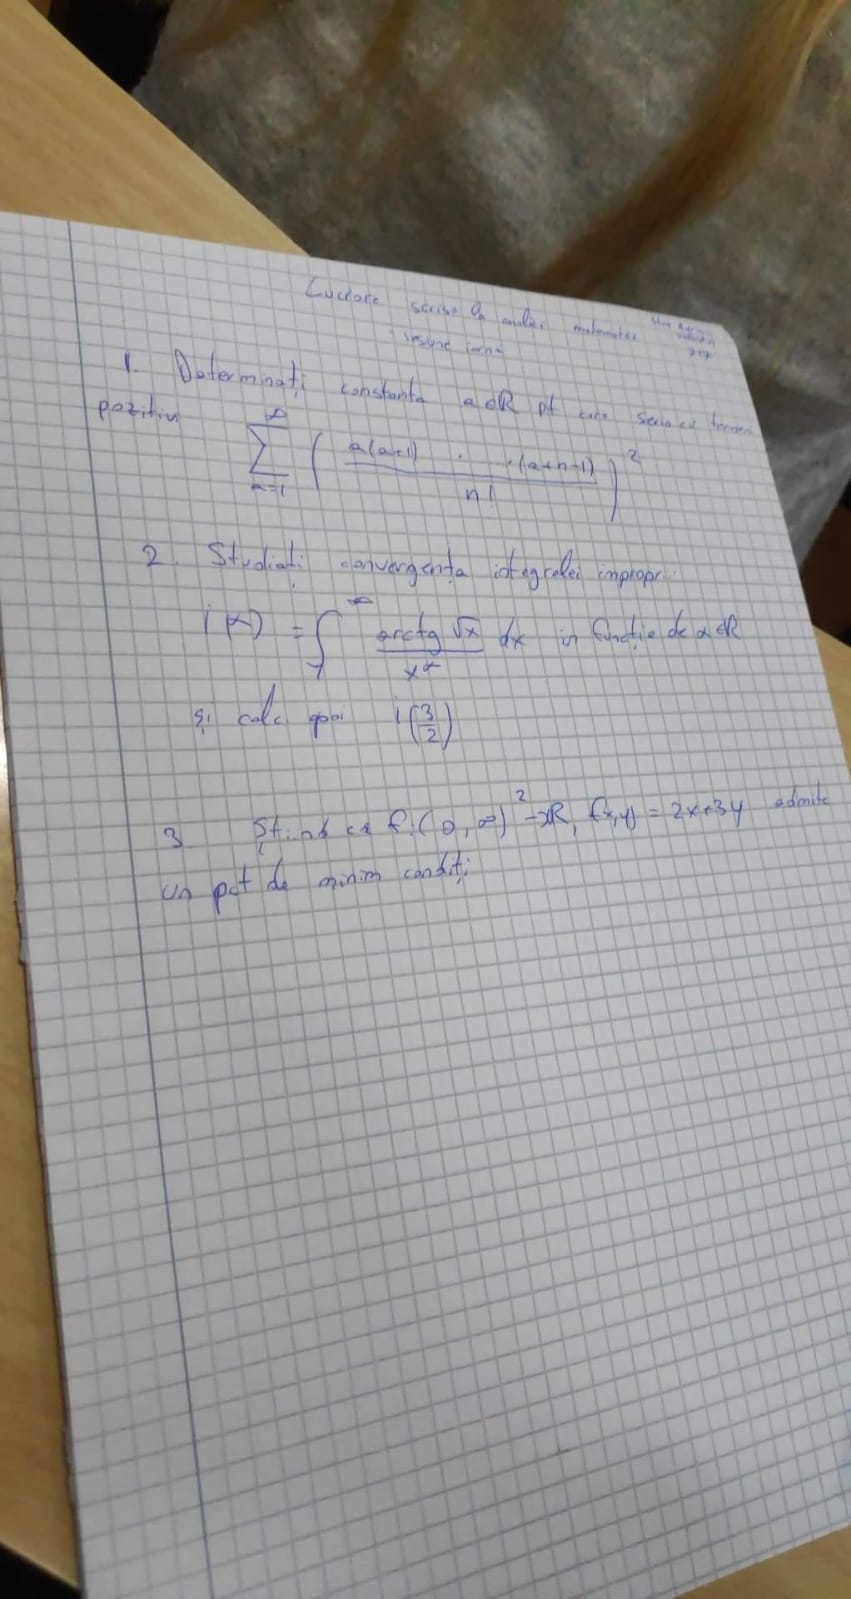 Lucrare scrisa la analiza matematica
sesiune iarna
217
1. Determinați constanta a ∈ R pt care seria cu termeni
pozitivi
∞
∑ ( a(a+1) . . . (a+n-1) / n! )²
n=1
2. Studiați convergența integralei improprii
i(α) = ∫₁^∞ arctg √x / x^α dx in funcție de α ∈ R
și calc apoi i(3/2)
3 Știind ca f:(0,∞)²→R, f(x,y) = 2x+3y admite
un pct de minim condiți